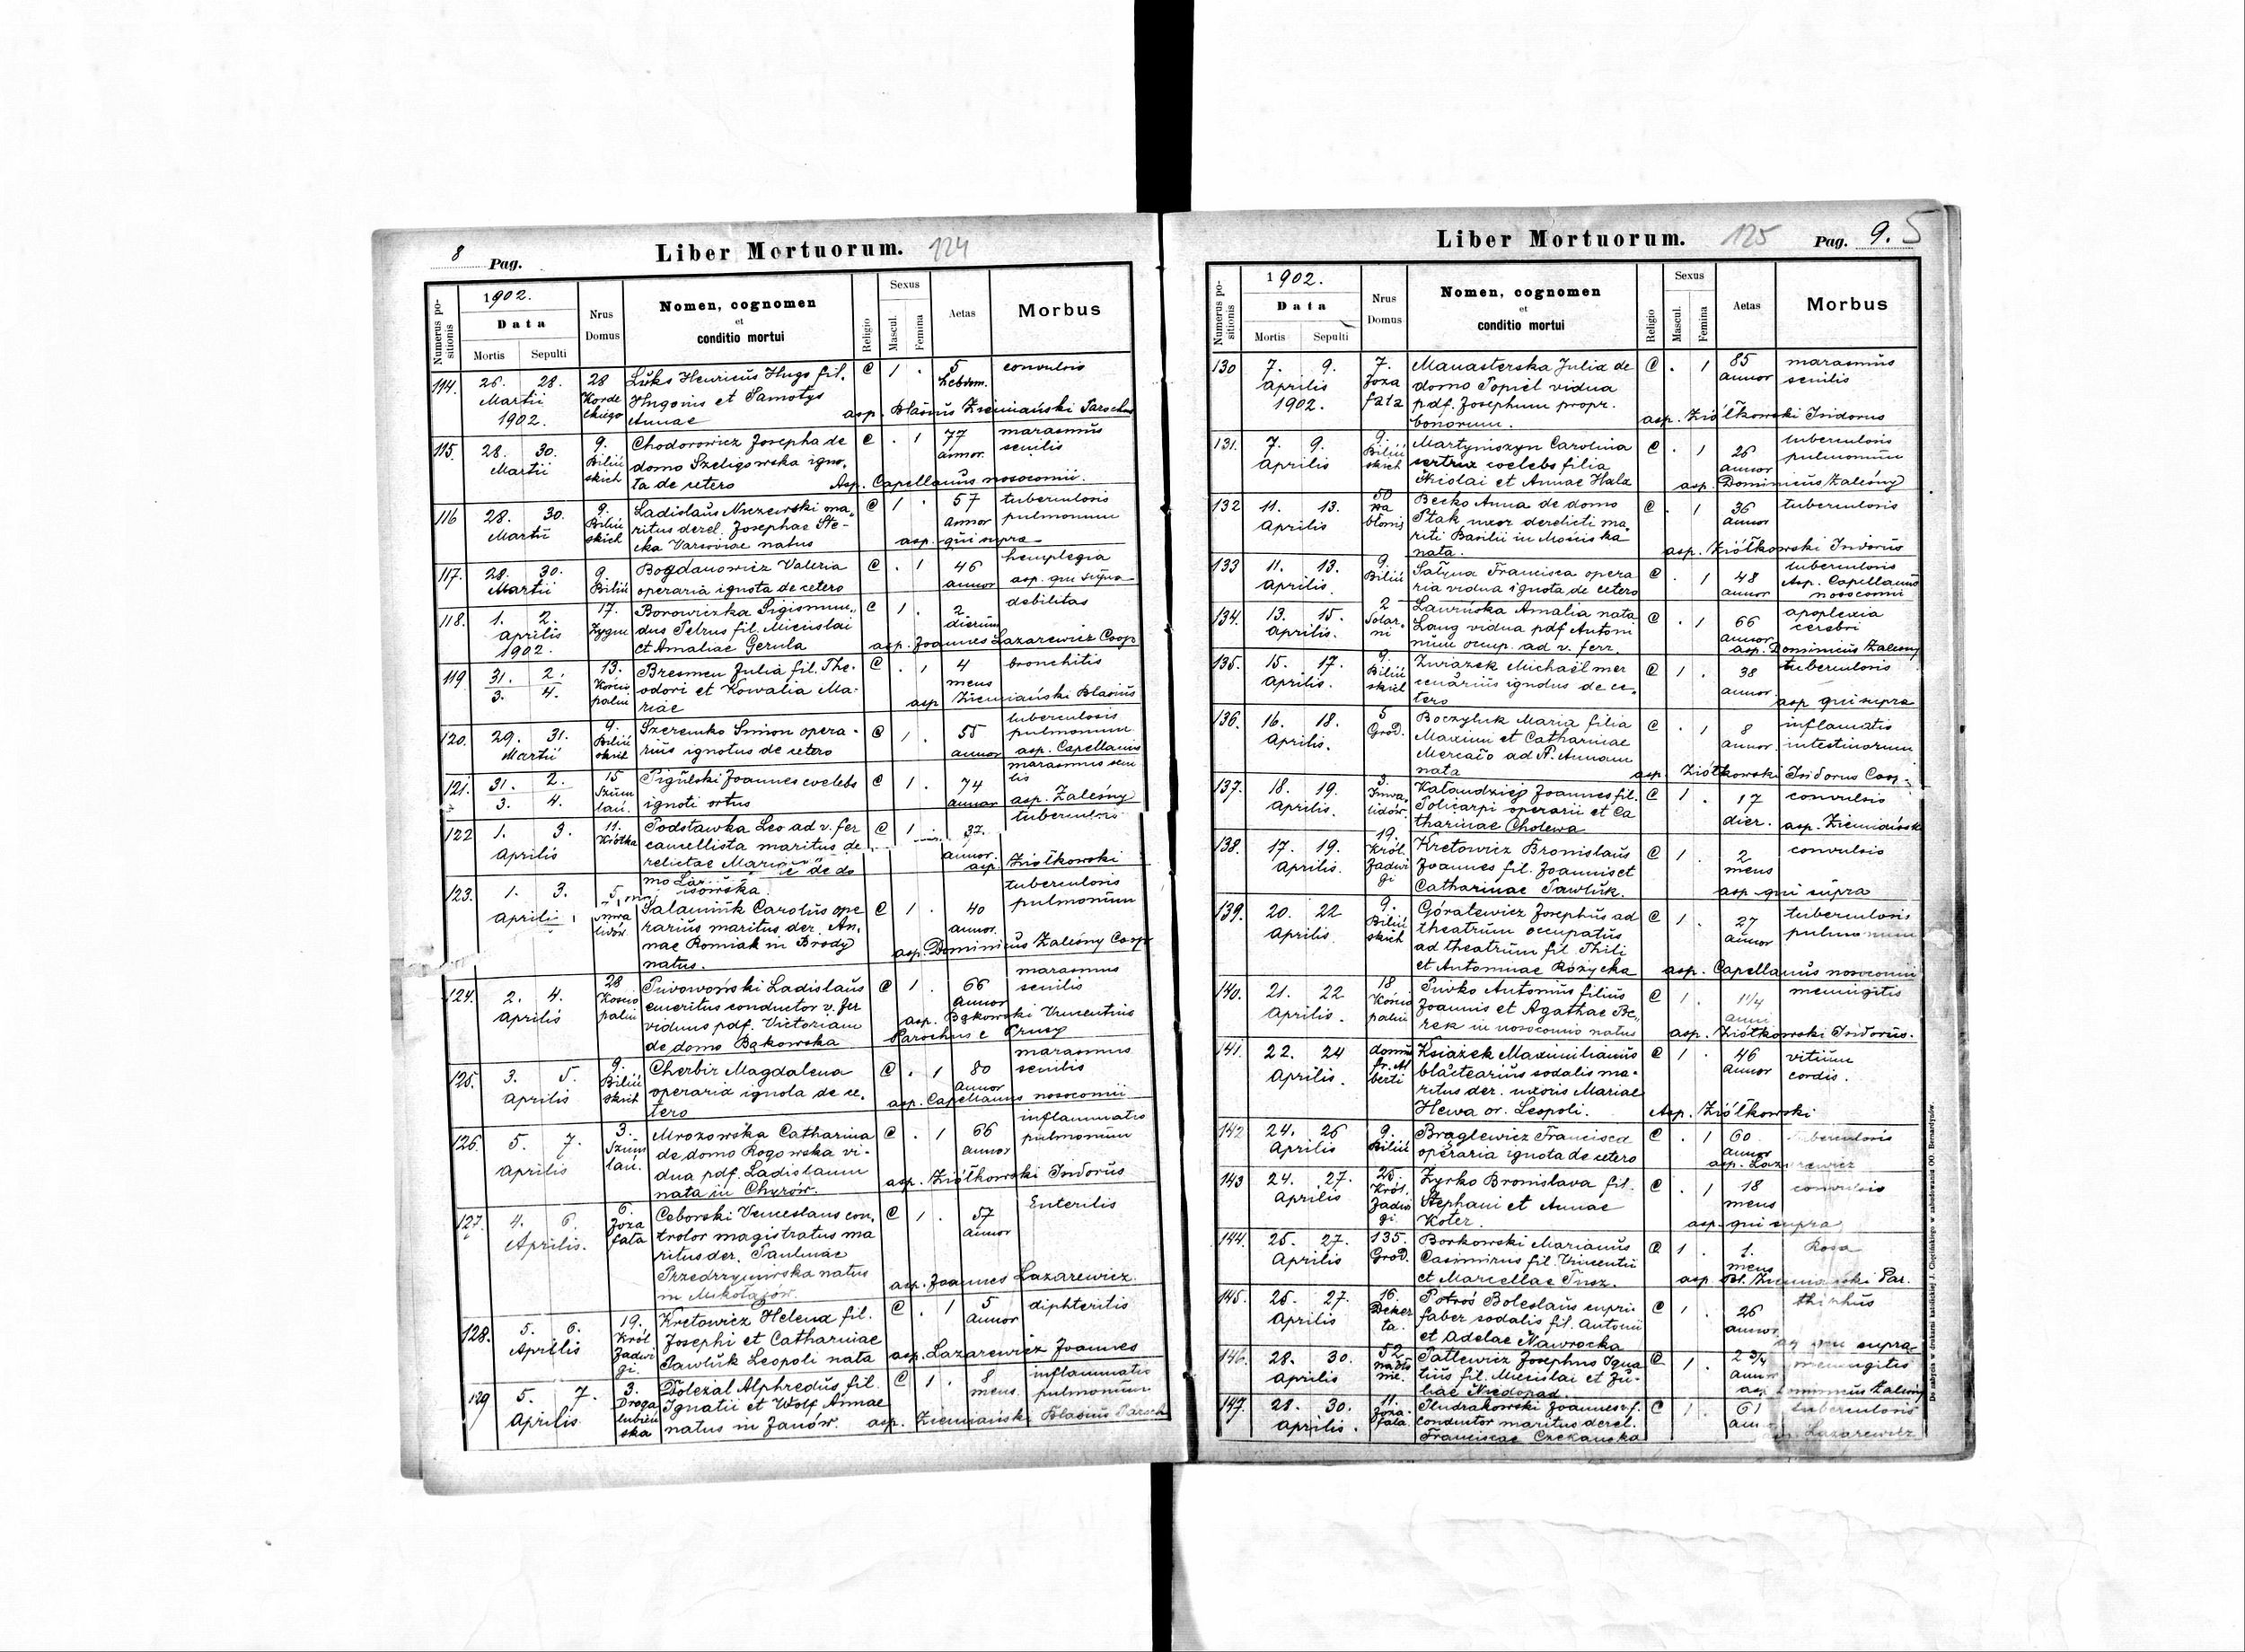 8 Pag. Liber Mortuorum. 124
Numerus positionis
1902.
Data
Mortis Sepulti
Nrus Domus
Nomen, cognomen
et
conditio mortui
Religio
Sexus
Mascul. Femina
Aetas
Morbus
114 26. 28. 28 Luks Henricus Hugo fil. C 1 . 5 convulsio
Martii Korde Hugonis et Samotys hebdom.
1902. ckiego Annae asp. Blasius Ziemiański Parochus
115. 28. 30. 9. Chodorowicz Josepha de C . 1 77 marasmus
Martii Biliń domo Szeligowska igno- annor. senilis
skich ta de cetero Asp. Capellanus nosocomii.
116 28. 30. 9. Ladislaus ma- C 1 . 57 tuberculosis
Martii Biliń ritus derel. Josephae Ste- annor pulmonum
skich cka Varsoviae natus asp. qui supra
117. 28. 30. 9. Bogdanowicz Valeria C . 1 46 hemplegia
Martii Biliń operaria ignota de cetero annor asp. qui supra
118. 1. 2. 17. Borowiczka Sigismun- C 1 . 2 debilitas
Aprilis Zygm dus Petrus fil. Miecislai dierum
1902. et Amaliae Gerula asp. Joannes Lazarewicz Coop
119 31. 2. 13. Bresmen Julia fil. The- C . 1 4 bronchitis
3. 4. Kościo odori et Kowalia Ma- mens
palni riae asp Ziemiański Blasius
120. 29. 31. 9. Szeremko Simon opera- C 1 . 55 tuberculosis
Martii Biliń rius ignotus de cetero annor pulmonum
skich asp. Capellanus
121. 31. 2. 15 Pigulski Joannes coelebs C 1 . 74 marasmus seni
3. 4. Szum ignoti ortus annor lis
lań. asp. Zaleśny
122 1. 3. 11. Podstawka Leo ad v. fer C 1 37. tuberculosis
Aprilis Krótka cancellista maritus de annor.
relictae Mariae de do asp. Ziółkowski
mo
123. 1. 3. 5. Salamink Carolus ope C 1 . 40 tuberculosis
Aprili Inwa rarius maritus der. An- annor. pulmonum
lidów. nae Romiak in Brody asp. Dominicus Zaleśny Coop
natus.
124. 2. 4. 28 Piwowoński Ladislaus C 1 . 66 marasmus
Aprilis Kościo emeritus conductor v. fer annor senilis
palni viduus pdf. Victoriam asp. Bąkowski Vincentius
de domo Bąkowska Parochus e Prusy
125. 3. 5. 9. Cherbir Magdalena C . 1 80 marasmus
Aprilis Biliń operaria ignota de ce- annor senilis
skich tero asp. Capellanus nosocomii
126. 5. 7. 3. Mrozowska Catharina C . 1 66 inflammatio
Aprilis Szum de domo Rogowska vi- annor pulmonum
lań. dua pdf. Ladislaum
nata in Chyrów. asp. Ziółkowski Isidorus
127. 4. 6. 6. Ceborski Venceslaus con- C 1 . 57 Enteritis
Aprilis. Joza trolor magistratus ma annor
fata ritus der. Paulinae
Przedrzymirska natus
in Mikołajów. asp. Joannes Lazarewicz.
128. 5. 6. 19. Kretowicz Helena fil. C . 1 5 diphteritis
Aprilis Król Josephi et Catharinae annor
Jadwi Pawluk Leopoli nata asp. Lazarewicz Joannes
gi.
129 5. 7. 3. Doleżal Alphredus fil. C 1 . 8 inflammatio
Aprilis Droga Ignatii et Wolf Annae mens. pulmonum
lubień natus in Janów. asp. Ziemiański Blasius Paroch
ska
Liber Mortuorum. 125 Pag. 9. 5
Numerus positionis
1902.
Data
Mortis Sepulti
Nrus Domus
Nomen, cognomen
et
conditio mortui
Religio
Sexus
Mascul. Femina
Aetas
Morbus
130 7. 9. 7. Manasterska Julia de C . 1 85 marasmus
Aprilis Joza domo Popiel vidua annor senilis
1902. fata pdf. Josephum propr.
bonorum. asp. Ziółkowski Isidorus
131. 7. 9. 9. Martyniszyn Carolina C . 1 26 tuberculosis
Aprilis Biliń sertrix coelebs filia annor pulmonum
skich Nicolai et Annae Hala asp. Dominicus Zaleśny
132 11. 13. 50 Becko Anna de domo C . 1 36 tuberculosis
Aprilis Na Ptak uxor derelicti ma- annor
błonie riti Basilii in Mościska
nata. asp. Ziółkowski Isidorus
133 11. 13. 9. Francisca opera C . 1 48 tuberculosis
Aprilis. Biliń ria vidua ignota de cetero annor Asp. Capellanus
nosocomii
134. 13. 15. 2 Lawrińska Amalia nata C . 1 66 apoplexia
Aprilis. Solar- Lang vidua pdf Antoni annor cerebri
ni num occup. ad v. ferr. asp. Dominicus Zaleśny
135. 15. 17. 9. Związek Michael mer C 1 . 38 tuberculosis
Aprilis. Biliń cenarius ignotus de ce- annor.
skich tero asp qui supra
136. 16. 18. 5 Boczyluk Maria filia C . 1 8 inflamatio
Aprilis. Grod. Maximi et Catharinae annor. intestinorum
Mercało ad St. Annam
nata asp. Ziółkowski Isidorus Coop.
137. 18. 19. 3. Kałaudziej Joannes fil. C 1 . 17 convulsio
Aprilis. Inwa- Policarpi operarii et Ca dier.
lidów. tharinae Cholewa asp. Ziemiański
138. 17. 19. 19. Kretowicz Bronislaus C 1 . 2 convulsio
Aprilis. Król. Joannes fil. Joannis et mens
Jadwi Catharinae Pawluk. asp. qui supra
gi
139. 20. 22 9. Góralewicz Josephus ad C 1 . 27 tuberculosis
Aprilis. Biliń theatrum occupatus annor pulmonum
skich ad theatrum fil. Phili
et Antoninae Różycka asp. Capellanus nosocomii
140. 21. 22 18 Piwko Antonius filius C 1 . 1 1/4 meningitis
Aprilis. Kościo Joannis et Agathae Be- anni
palni rek in nosocomio natus asp. Ziółkowski Isidorus.
141. 22. 24 domus Książek Maximilianus C 1 . 46 vitium
Aprilis. fr. Al blactearius sodalis ma- annor cordis.
berti ritus der. uxoris Mariae
Hewa or. Leopoli. Asp. Ziółkowski
142 24. 26 9. Braglewicz Francisca C . 1 60 tuberculosis
Aprilis Biliń operaria ignota de cetero annor
asp. Lazarewicz
143 24. 27. 25. Zyrko Bronislava fil. C . 1 18 convulsio
Aprilis Król. Stephani et Annae mens
Jadwi Koter. asp. qui supra
gi.
144. 25. 27. 135. Borkowski Marianus C 1 . 1. Rosa
Aprilis Grod. Casimirus fil. Vincentii mens
et Marcellae Tusz. asp. Bl. Ziemiański Par.
145. 25. 27. 16. Potroś Boleslaus cupri- C 1 . 26
Aprilis Deker faber sodalis fil. Antonii annor.
ta. et Adelae Nawrocka qui supra
146. 28. 30. 52 Patlewicz Josephus Igna C 1 . 2 3/4 meningitis
Aprilis nabło tius fil. Miecislai et Ju- annor
nie. liae Niedopad. asp. Dominicus Zaleśny
147. 28. 30. 11. Pludrakowski Joannes v. f. C 1 . 61 tuberculosis
Aprilis. Joza- conductor maritus derel. ann
fata. Franciscae Czekańska Lazarewicz
Do nabycia w drukarni katolickiej J. Chęcińskiego w zabudowaniu OO. Bernardynów.